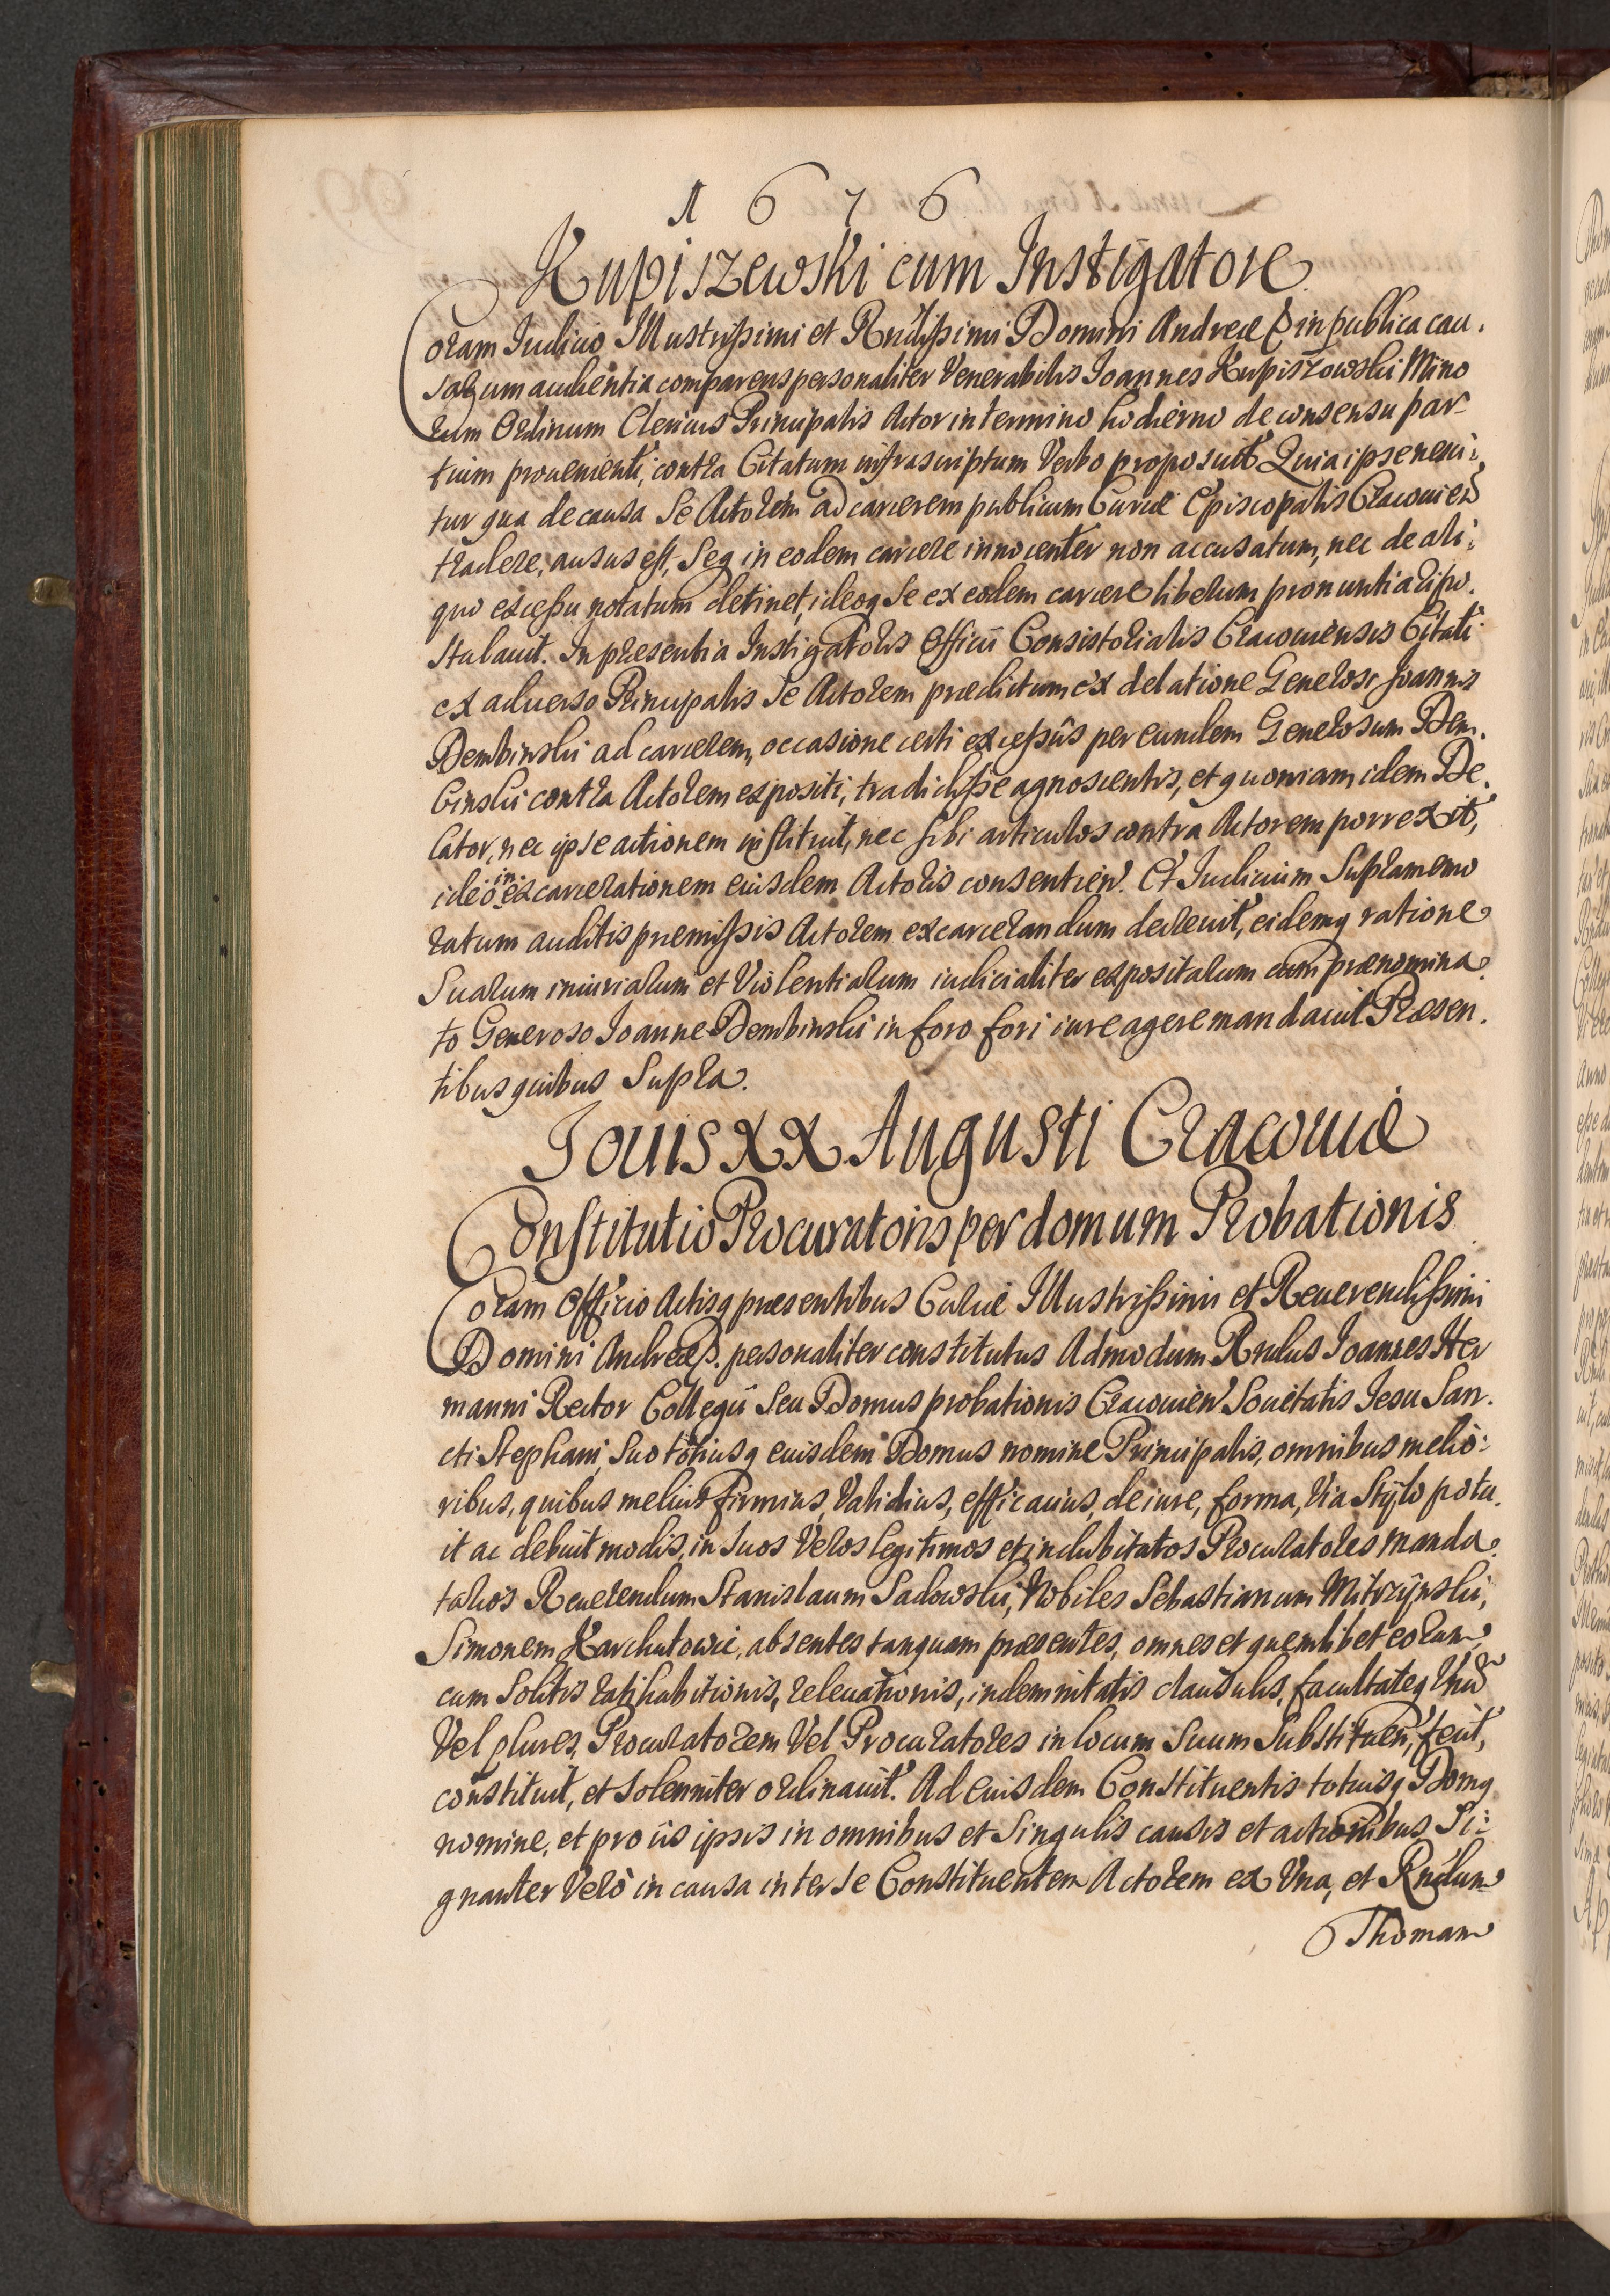 1676
Kupiszewski cum Instigatore.
Coram Iudicio Illustrissimi et Rndissimi Domini Andreæ P in publica cau.
sarum audientia comparens personaliter Venerabilis Joannes Kupiszowski Mino
rum Ordinum Clericus Principalis Actor in termino hodierno de consensu par-
tium prouenienti, contra Citatum infrascriptum Verbo proposuit Quia ipse nesci:
tur qua de causa Se Actorem ad carcerem publicum Curiæ Episcopalis Cracouien
tradere, ausus est, Seq in eodem carcere innocenter non accusatum, nec de ali:
quo excessu notatum detinet, ideoq Se ex eodem carcere liberum pronuntiari po.
stulauit. In præsentia Instigatoris Officii Consistorialis Cracouiensis Citati
ex aduerso Principalis Se Actorem prædictum ex delatione Generosi Joannis
Dembinski ad carcerem, occasione certi excessûs per eundem Generosum Dem.
binski contra Actorem expositi, tradidisse agnoscentis, et quoniam idem De.
lator, nec ipse actionem instituit, nec sibi articulos contra Actorem porrexit,
ideo in excarcerationem eiusdem Actoris consentien. Et Iudicium Supramemo
ratum auditis præmissis Actorem excarcerandum decreuit, eidemq ratione
Suarum iniuriarum et Violentiarum iudicialiter expositarum cum prænomina.
to Generoso Joanne Dembinski in foro fori iure agere mandauit. Præsen.
tibus quibus Supra.
Jouis XX Augusti Cracouiæ
Constitutio Procuratoris per domum Probationis
Coram Officio Actisq præsentibus Curiæ Illustrissimi et Reuerendissimi
Domini Andreæ P. personaliter constitutus Admodum Rndus Joannes Her
manni Rector Collegii Seu Domus probationis Cracouien Societatis Jesu San.
cti Stephani, Suo totiusq eiusdem Domus nomine Principalis, omnibus melio:
ribus, quibus melius firmius, Validius, efficacius, de iure, forma, Via Stylo potu.
it ac debuit modis, in Suos Veros legitimos et indubitatos Procuratores manda.
tarios Reuerendum Stanislaum Sadowski, Nobiles Sebastianum Mitrzynski,
Simonem Karchutowic, absentes tanquam præsentes, omnes et quemlibet eorum
cum Solitis ratihabitionis, releuationis, indemnitatis clausulis, facultateq Vnu
Vel plures, Procuratorem Vel Procuratores in locum Suum Substituen, fecit,
constituit, et Solenniter ordinauit. Ad eiusdem Constituentis totiusq Domq
nomine, et pro iis ipsis in omnibus et Singulis causis et actionibus Si:
gnanter Verò in causa inter Se Constituentem Actorem ex Vna, et Rndum
Thomam